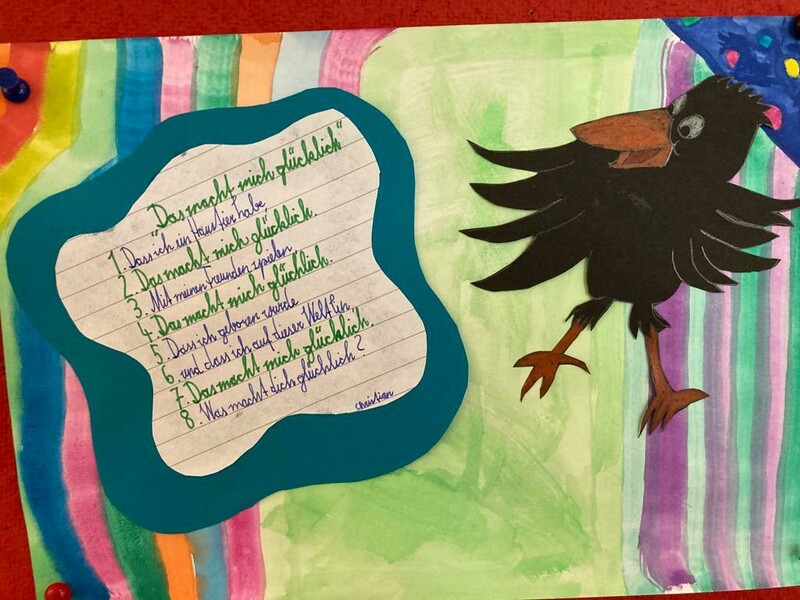 "Das macht mich glücklich"
1. Dass ich ein Haustier habe,
2. Das macht mich glücklich.
3. Mit meinen Freunden spielen
4. Das macht mich glücklich.
5. Dass ich geboren wurde
6. und dass ich auf dieser Welt bin,
7. Das macht mich glücklich.
8. Was macht dich glücklich?
Christian